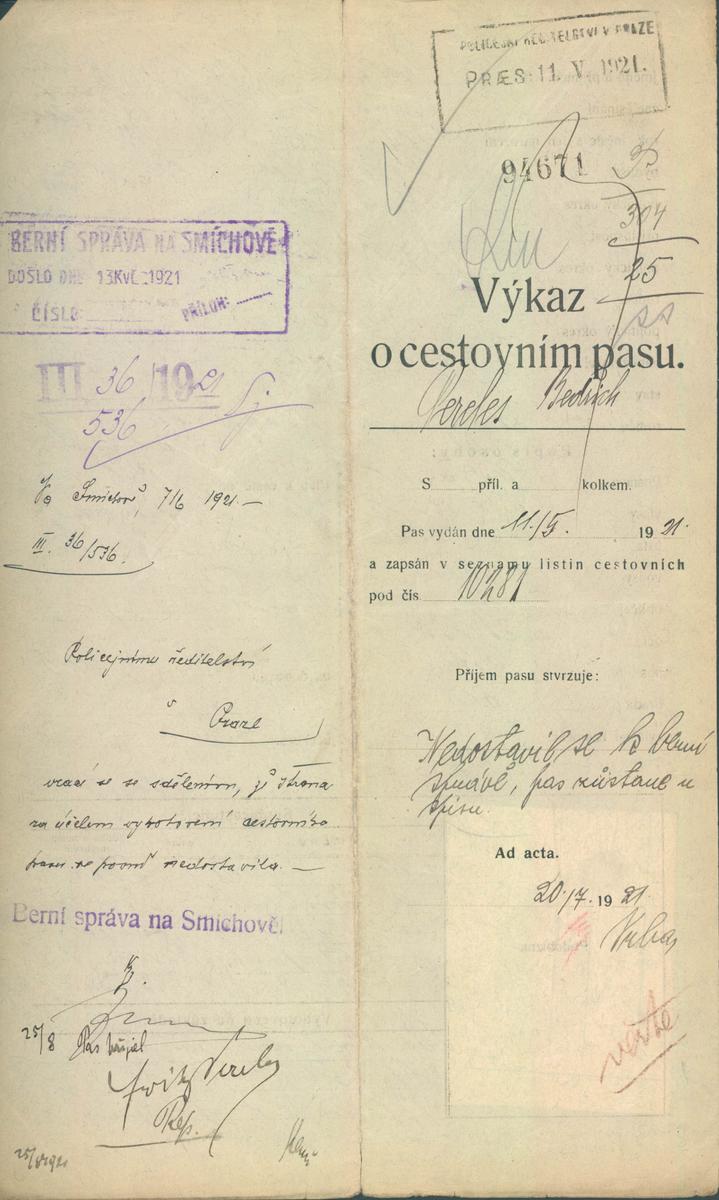 BERNÍ SPRÁVA NA SMÍCHOVĚ
DOŠLO DNE 13 KVĚ 1921
ČÍSLO: PŘÍLOH:
III 36/1921
536
Na Smíchově, 7/6 1921.—
III. 36/536.
Policejnímu ředitelství
v Praze
vrací se se sdělením, že strana
za účelem vyhotovení cestovního
pasu se posud nedostavila.—
Berní správa na Smíchově
25/8 Pas přijal
POLICEJNÍ ŘEDITELSTVÍ V PRAZE
PRES: 11. V. 1921.
94671
P
304
25
Výkaz
o cestovním pasu.
Pereles Bedřich
S příl. a kolkem.
Pas vydán dne 11./5. 1921.
a zapsán v seznamu listin cestovních
pod čís. 10281
Příjem pasu stvrzuje:
Nedostavil se k berní
správě, pas zůstane u
spisu.
Ad acta.
20./7. 1921